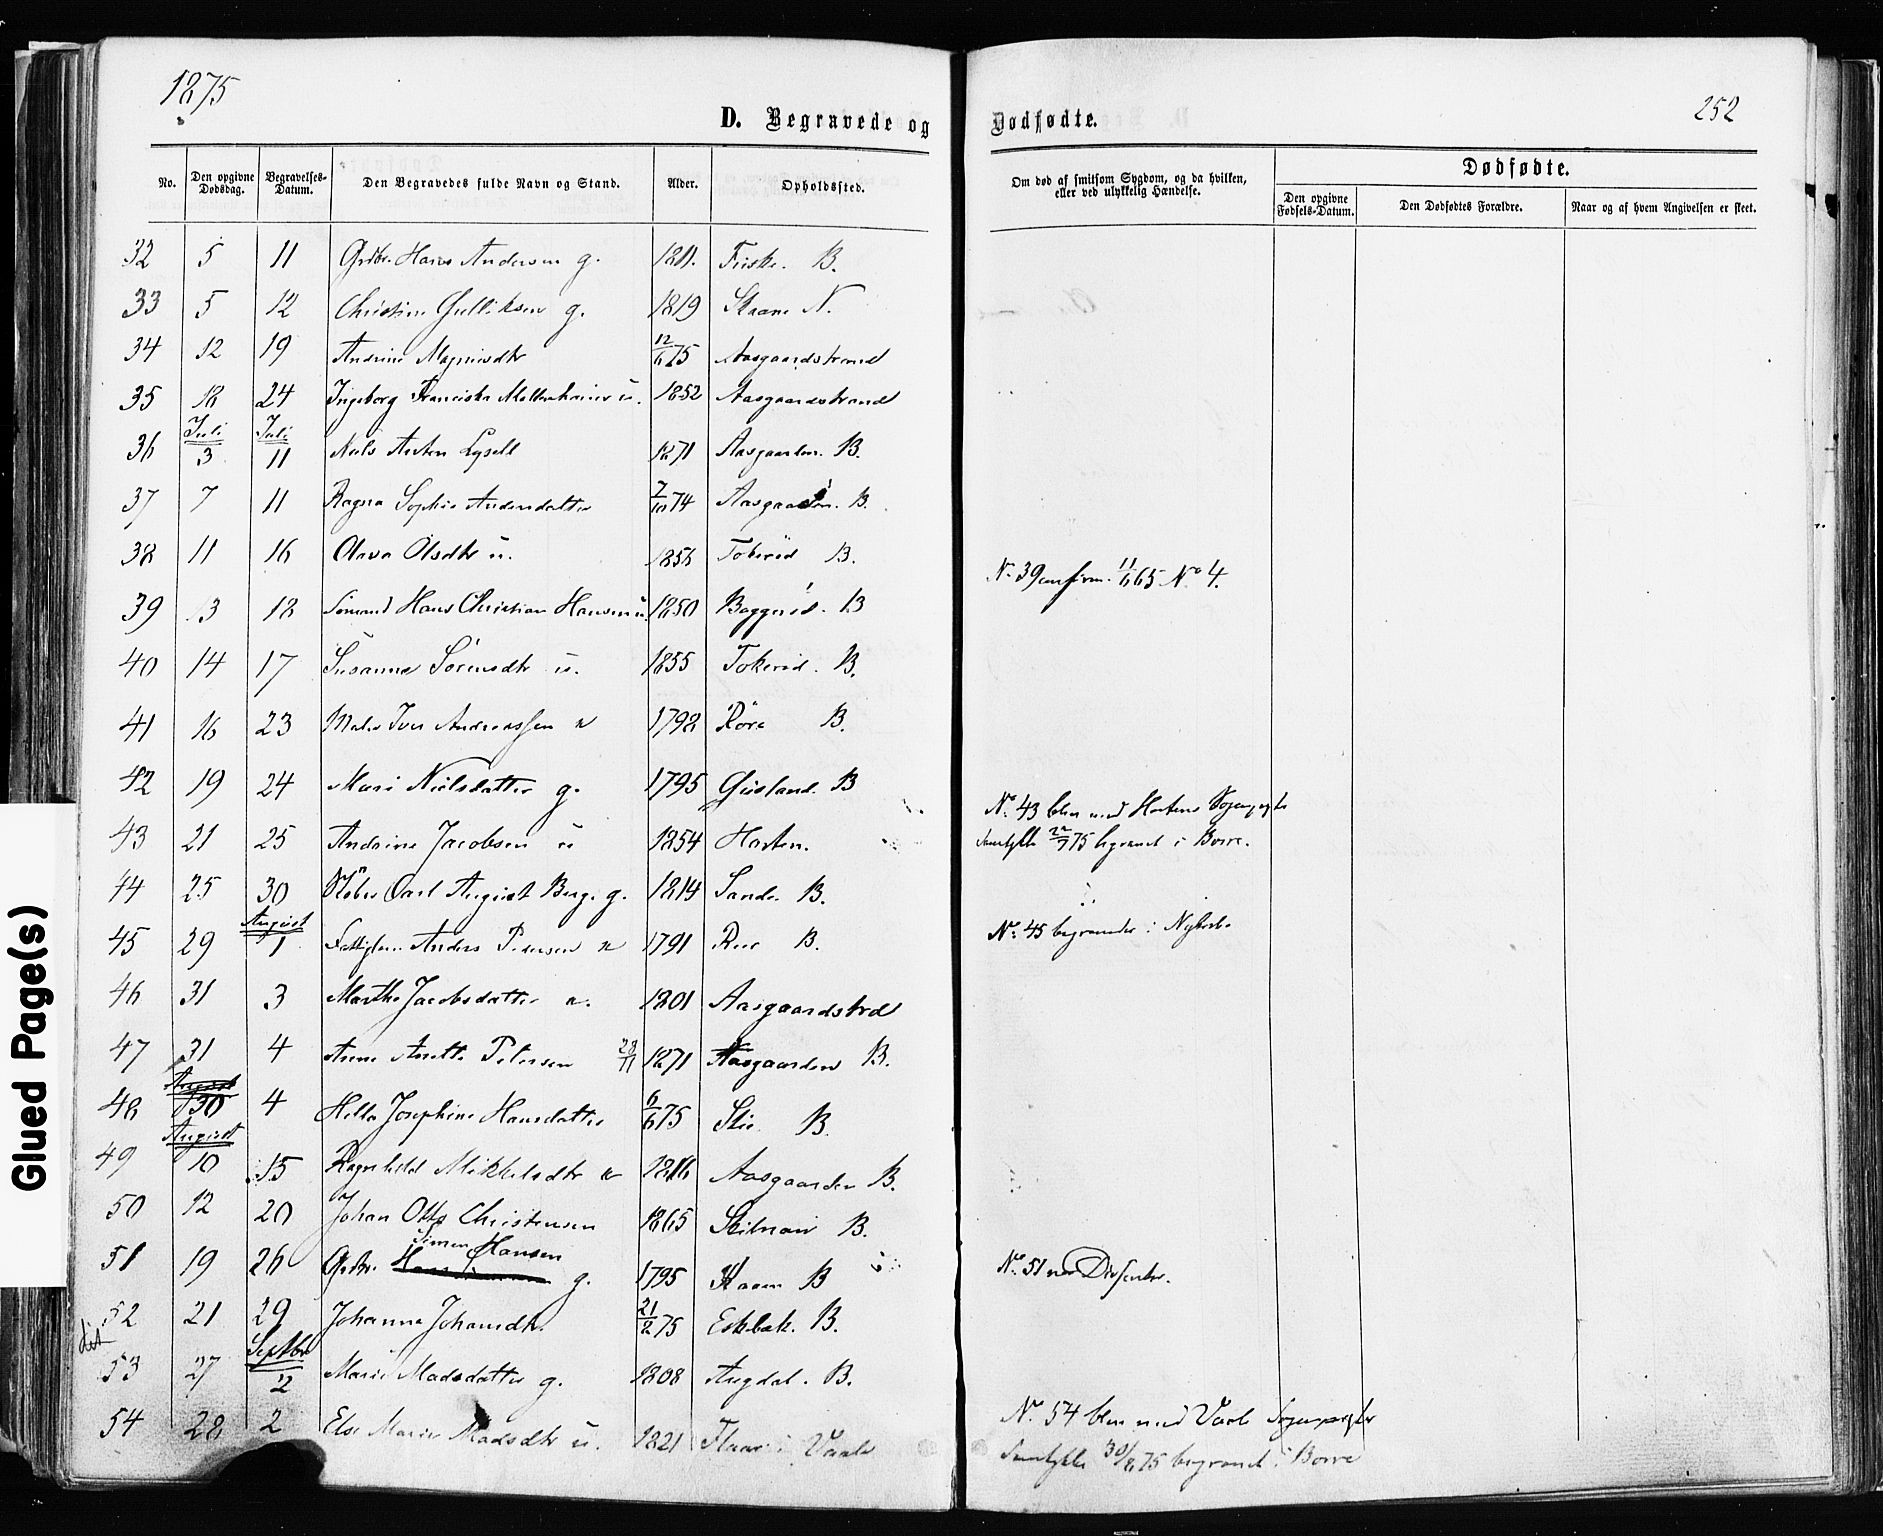 1875
252
D. Begravede og Dødfødte.
No. Den opgivne Dødsdag. Begravelses-Datum. Den Begravedes fulde Navn og Stand. Alder. Opholdssted. Om død af smitsom Sygdom, og da hvilken, eller ved ulykkelig Hændelse. Dødfødte.
Den opgivne Fødsels-Datum. Den Dødfødtes Forældre. Naar og af hvem Angivelsen er skeet.
32 5 11 Grdbr. Hans Andersen g. 1811. B.
33 5 12 Christine Gulliksen g. 1819 Skaane N.
34 12 19 Andrine Magnusdtr 12/6 75 Aasgaardstrand
35 18 24 Ingeborg Franciska u. 1852 Aasgaardstrand
Juli Juli
36 3 11 Niels Anton Lysell 1871 Aasgaarden. B.
37 7 11 Ragna Sophie Andersdatter 7/10 74 Aasgaarden. B.
38 11 16 Olava Olsdtr u. 1856 Tokerød B.
39 13 18 Sømand Hans Christian Hansen u. 1850 Baggerød. B
No 39 confirm. 11/6 65 No 4.
40 14 17 Susanne Sørensdtr u. 1855 Tokerød. B.
41 16 23 Iver Andreassen 1792 Røre B.
42 19 24 Mari Nielsdatter g. 1795 Gusland. B
43 21 25 Andrine Jacobsen u 1854 Horten.
No. 43 blev med Hortens Sogneprests Samtykke 22/7 75 begravet i Borre.
44 25 30 Carl August Berg. g. 1814 Sande. B.
August
45 29 1 Anders Pedersen 1791 B.
No. 45 begravedes i
46 31 3 Marthe Jacobsdatter e. 1801 Aasgaardstrd
47 31 4 Anne Anette Petersen 28/11 1871 Aasgaarden B.
August
48 30 4 Josephine Hansdatter 6/6 75 B.
August
49 10 15 Ragnhild Mikkelsdtr e 1816 Aasgaarden B.
50 12 20 Johan Otto Christensen 1865 B.
51 19 26 Grdbr. Simen Hansen g. 1795 B
No. 51 var Dissenter.
52 21 29 Johanne Johansdtr. 21/2 75 Eskebæk. B.
Septbr
53 27 2 Marie Madsdatter g. 1808 Augdal. B.
54 28 2 Else Marie Madsdtr u. 1821 i Vaale
No. 54 blev med Vaale Sogneprests
Samtykke 30/8 75 begravet i Borre
Glued Page(s)